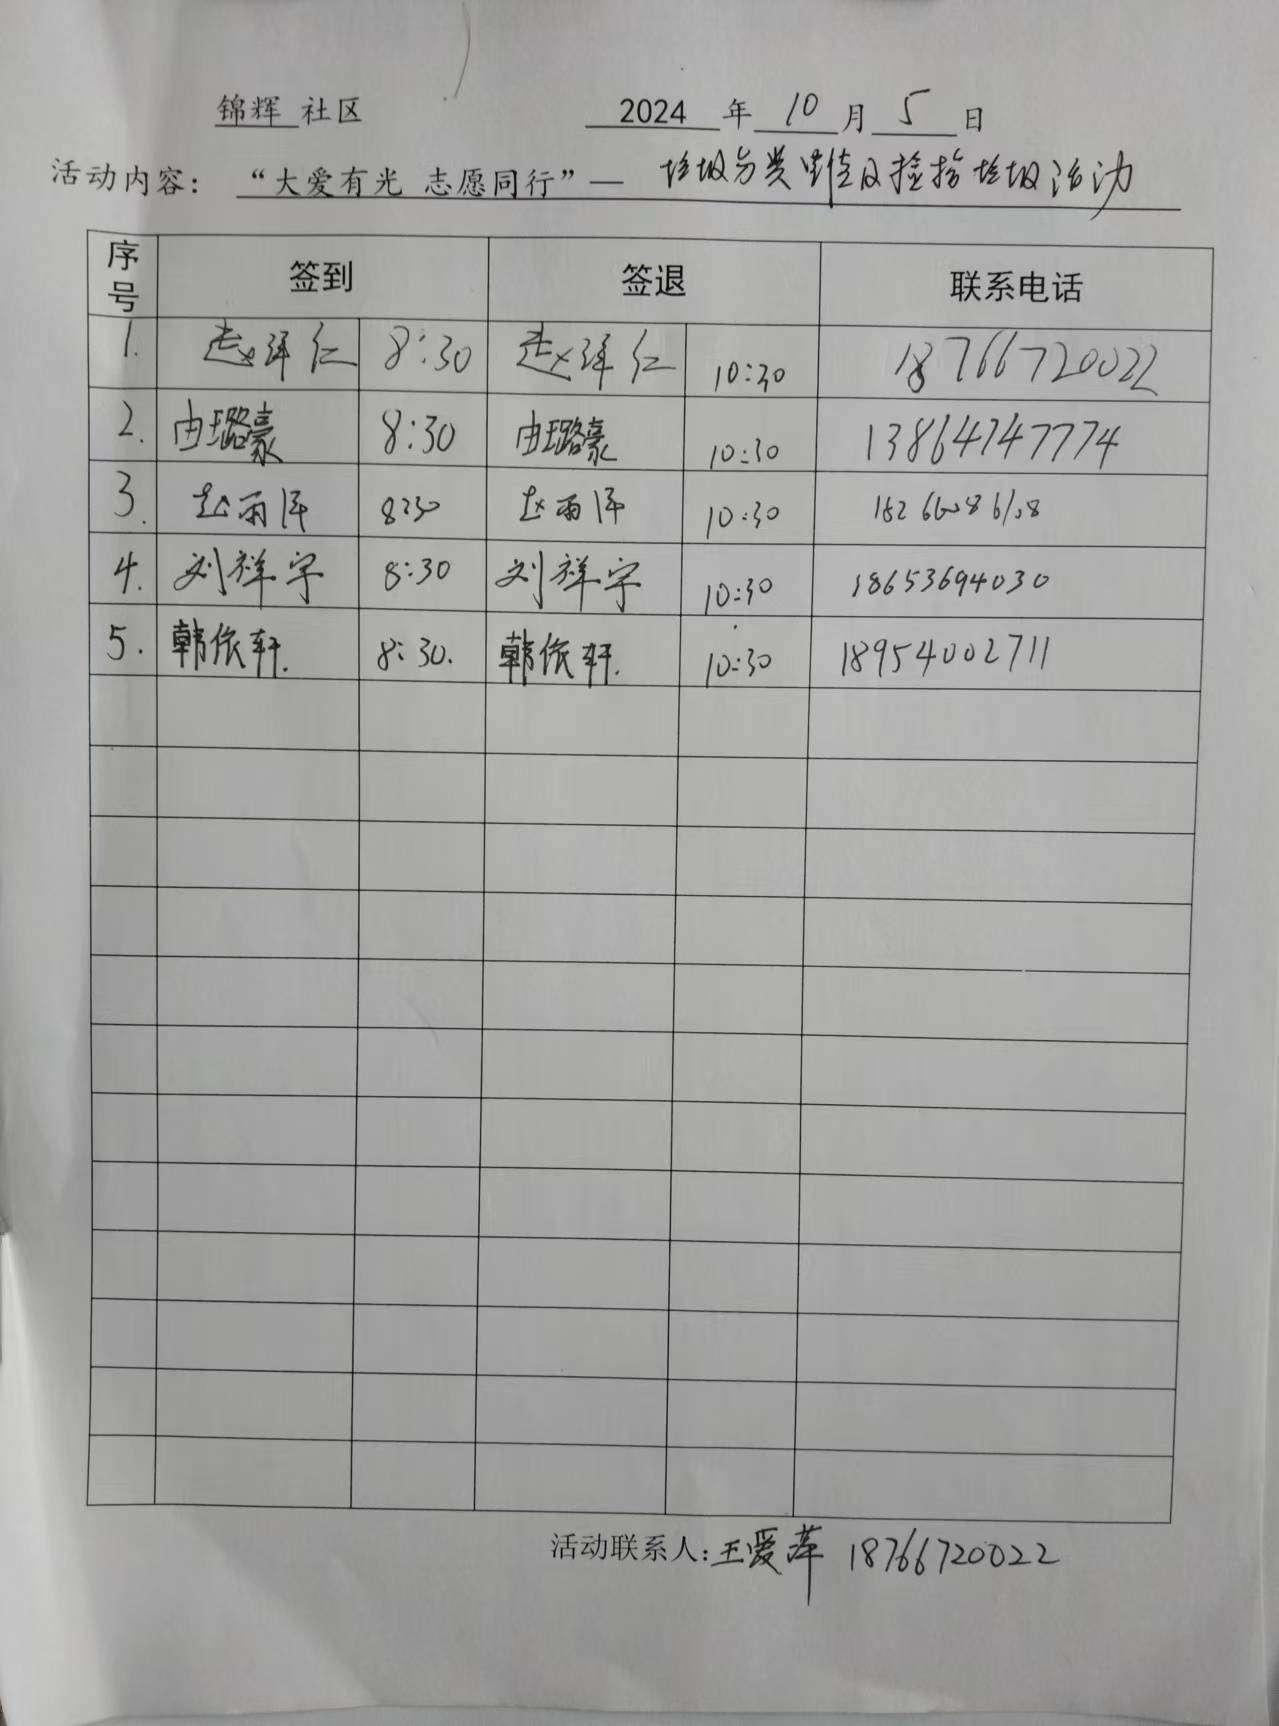 锦辉 社区 2024 年 10 月 5 日
活动内容： “大爱有光 志愿同行”— 垃圾分类 及捡拾垃圾活动
序号 签到 签退 联系电话
1. 赵泽仁 8:30 赵泽仁 10:30 18766720022
2. 由璐豪 8:30 由璐豪 10:30 13864747774
3. 赵雨泽 8:30 赵雨泽 10:30
4. 刘祥宇 8:30 刘祥宇 10:30 18653694030
5. 韩依轩. 8:30. 韩依轩. 10:30 18954002711
活动联系人：王爱萍 18766720022